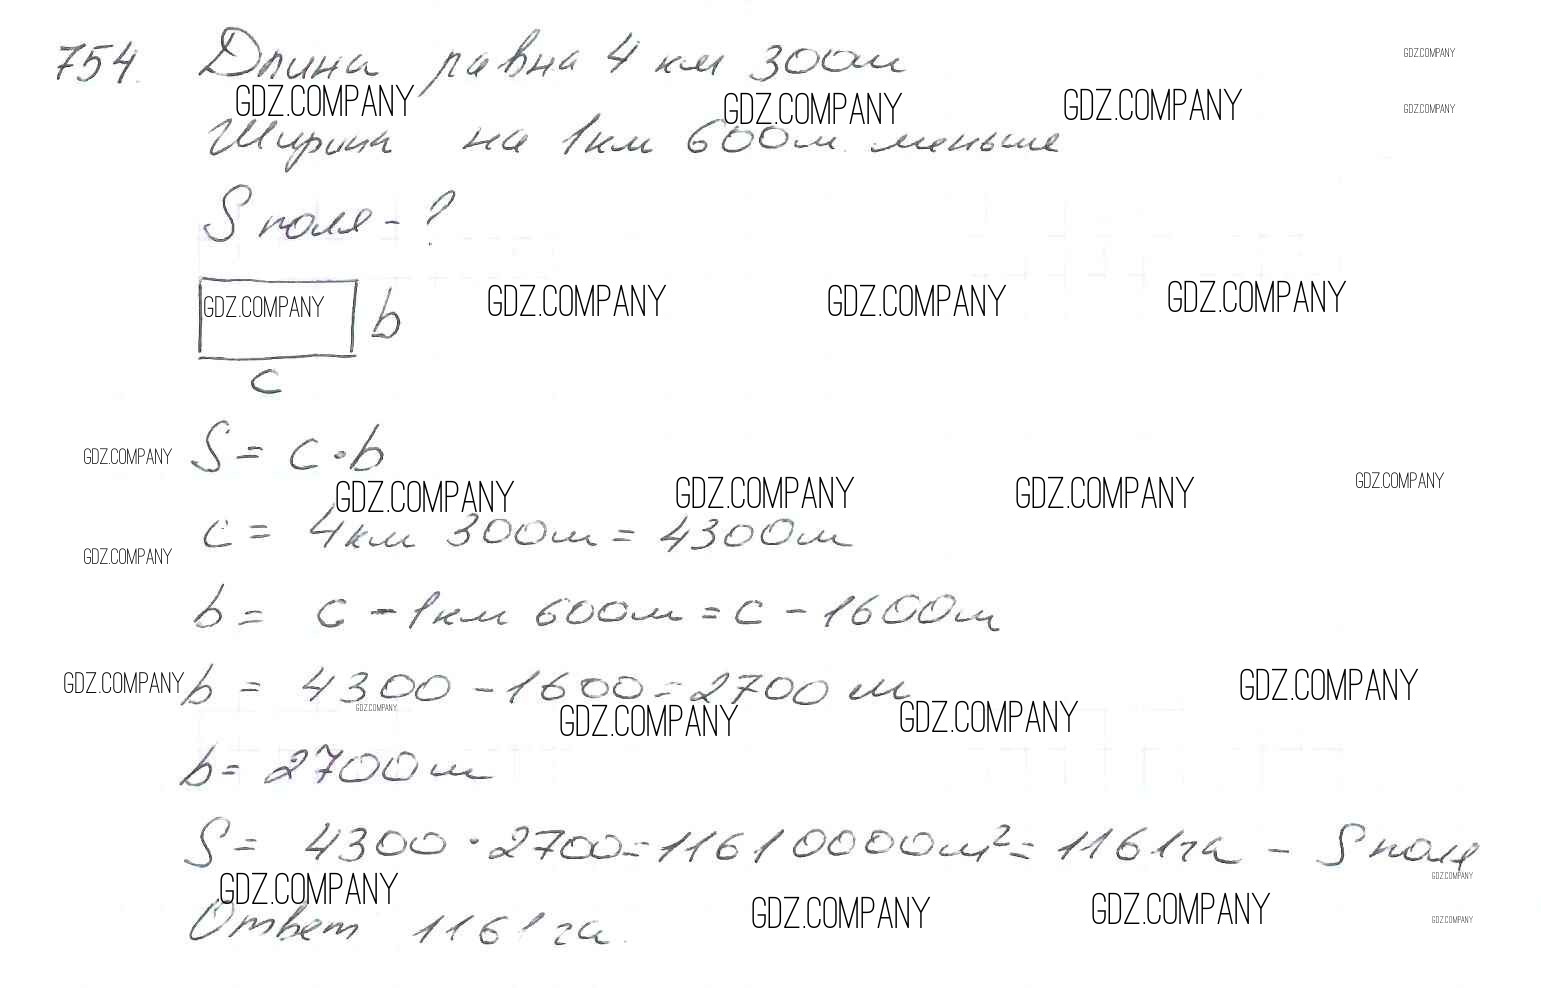 754. Длина равна 4 км 300м
GDZ.COMPANY
GDZ.COMPANY GDZ.COMPANY GDZ.COMPANY
GDZ.COMPANY
Ширина на 1км 600м меньше
S поля - ?
GDZ.COMPANY b GDZ.COMPANY GDZ.COMPANY GDZ.COMPANY
c
GDZ.COMPANY S = c·b
GDZ.COMPANY GDZ.COMPANY GDZ.COMPANY GDZ.COMPANY
c = 4км 300м = 4300м
GDZ.COMPANY
b = c - 1км 600м = c - 1600м
GDZ.COMPANY b = 4300 - 1600 = 2700 м GDZ.COMPANY
GDZ.COMPANY GDZ.COMPANY GDZ.COMPANY
b = 2700м
S = 4300 · 2700 = 11610000м² = 1161га - S поля
GDZ.COMPANY
GDZ.COMPANY GDZ.COMPANY GDZ.COMPANY
GDZ.COMPANY
Ответ 1161 га.